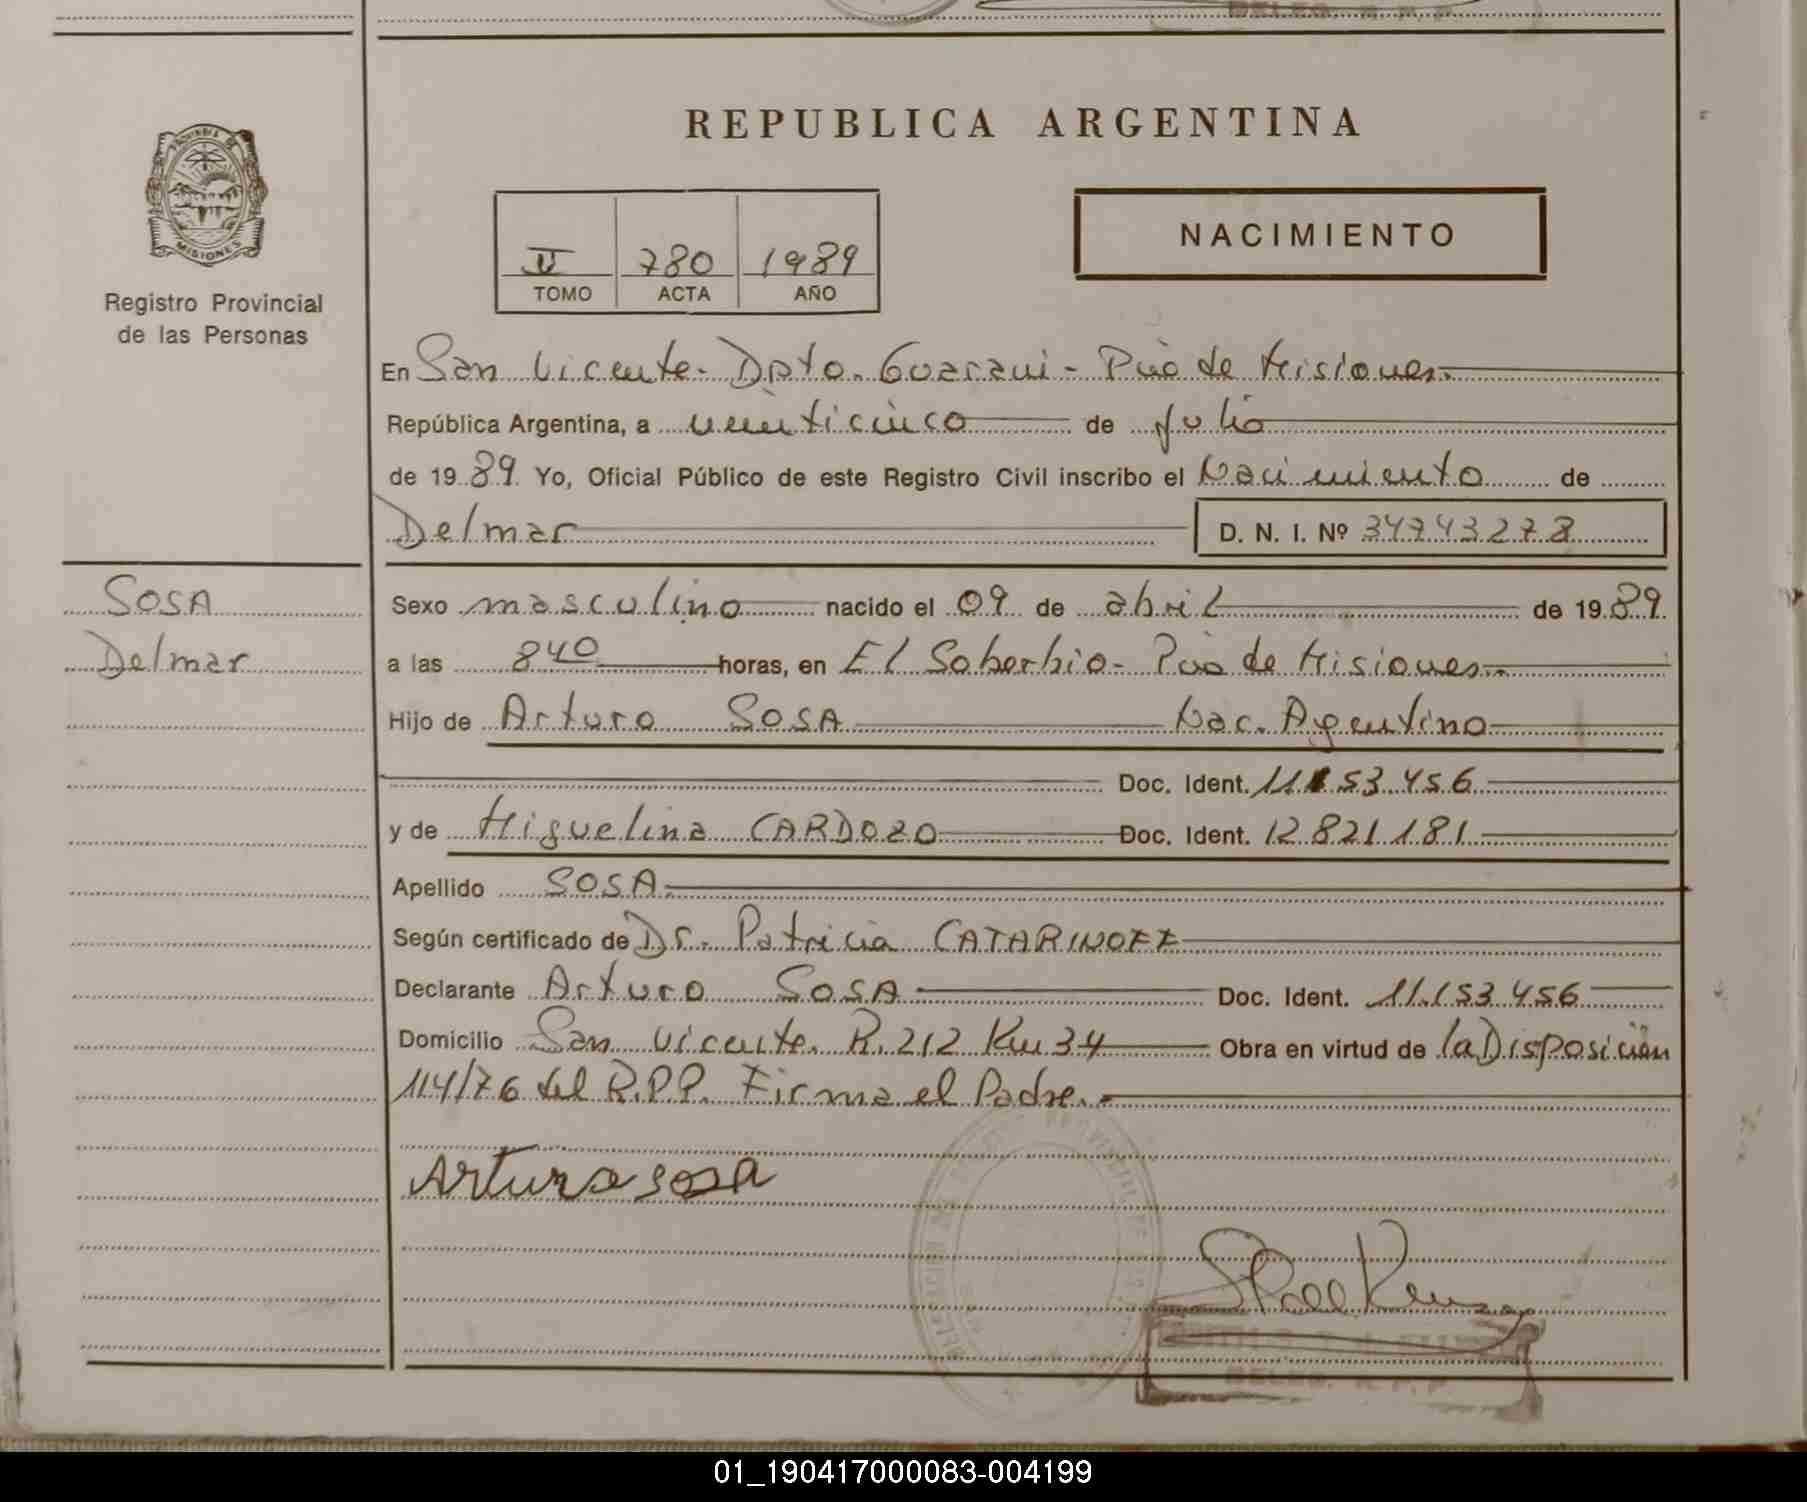 DELEG. R. P. P.
REPUBLICA ARGENTINA
PROVINCIA DE
MISIONES
Registro Provincial
de las Personas
II 780 1989
TOMO ACTA AÑO
NACIMIENTO
En San Vicente - Dpto. Guarani - Pcia de Misiones.
República Argentina, a veinticinco de Julio
de 1989 Yo, Oficial Público de este Registro Civil inscribo el Nacimiento de
Delmar D. N. I. Nº 34743278
SOSA
Delmar
Sexo masculino nacido el 09 de abril de 1989
a las 840 horas, en El Soberbio - Pcia de Misiones.
Hijo de Arturo SOSA Nac. Argentino
Doc. Ident. 11153.456
y de Miguelina CARDOZO Doc. Ident. 12.821.181
Apellido SOSA.
Según certificado de Dr. Patricia CATARINOFF
Declarante Arturo SOSA Doc. Ident. 11.153.456
Domicilio San Vicente. R. 212 Km 34 Obra en virtud de la Disposición
114/76 del R.P.P. Firma el Padre.
Arturo sosa
DELEG. R. P. P.
01_190417000083-004199